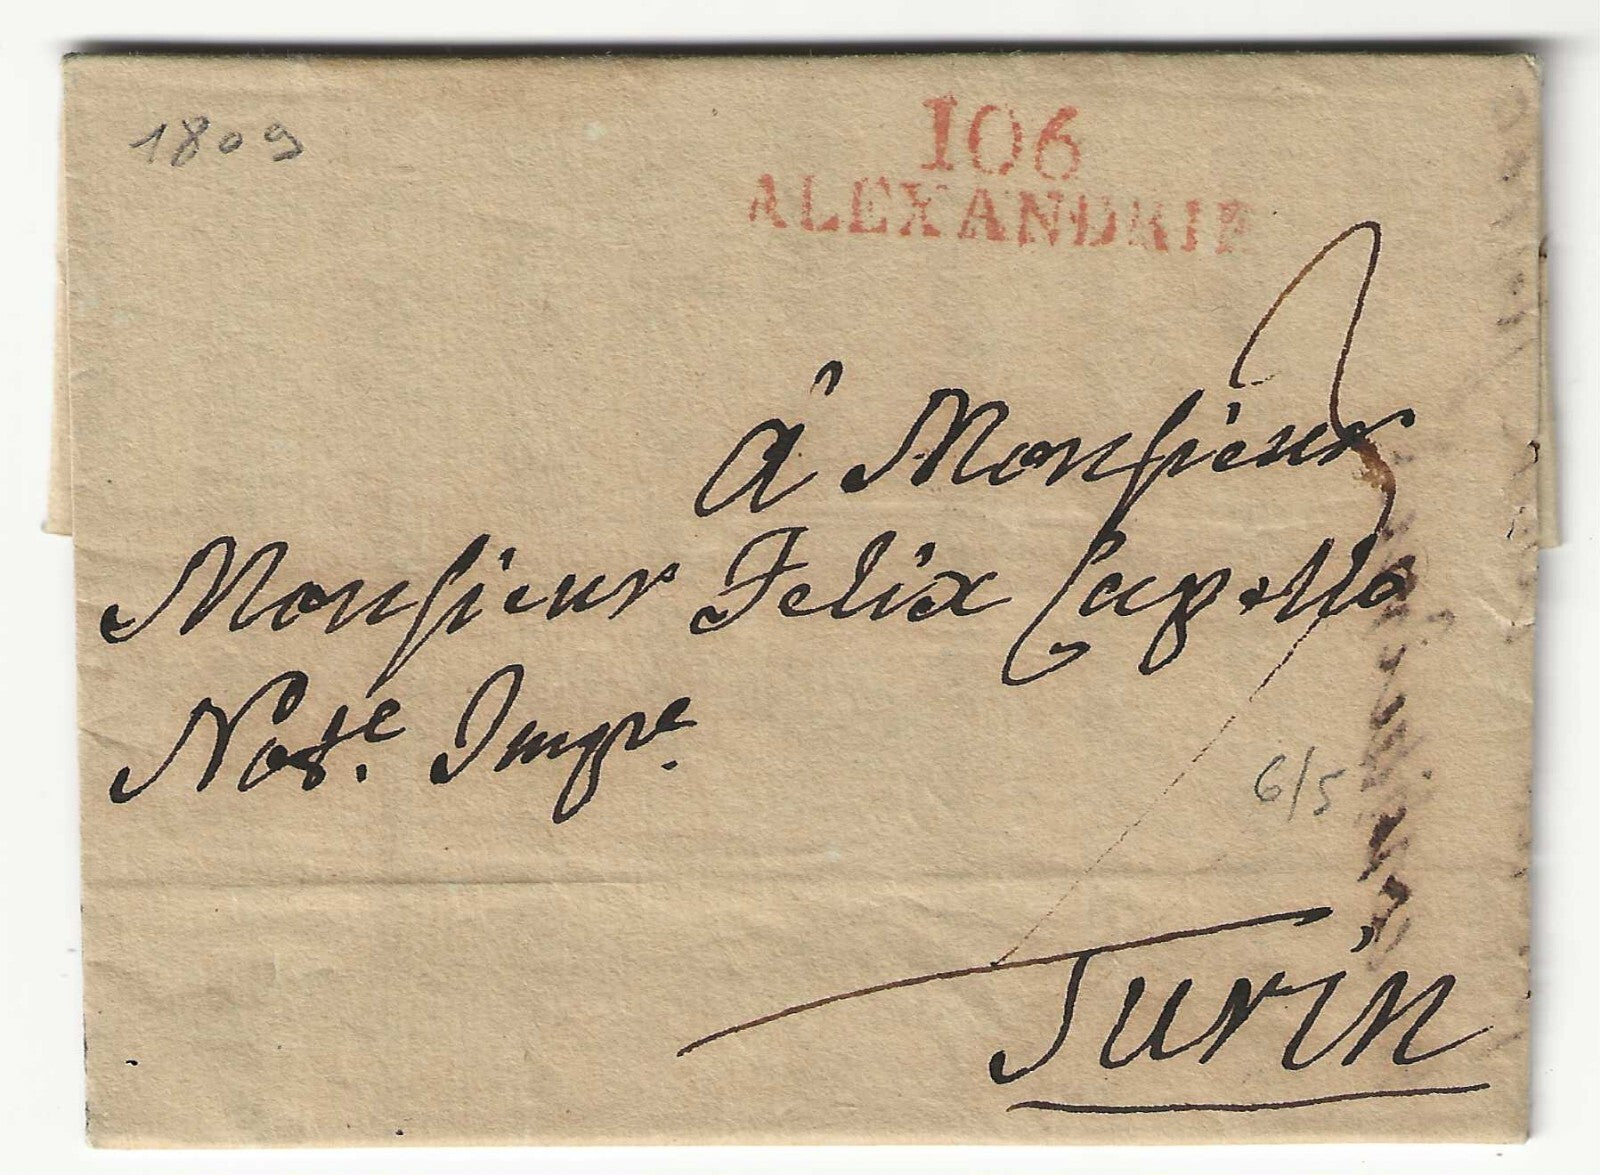 1809
106
ALEXANDRIE
à Monsieur
Monsieur Felix Capello
Not.e Imp.re
6/5
Turin